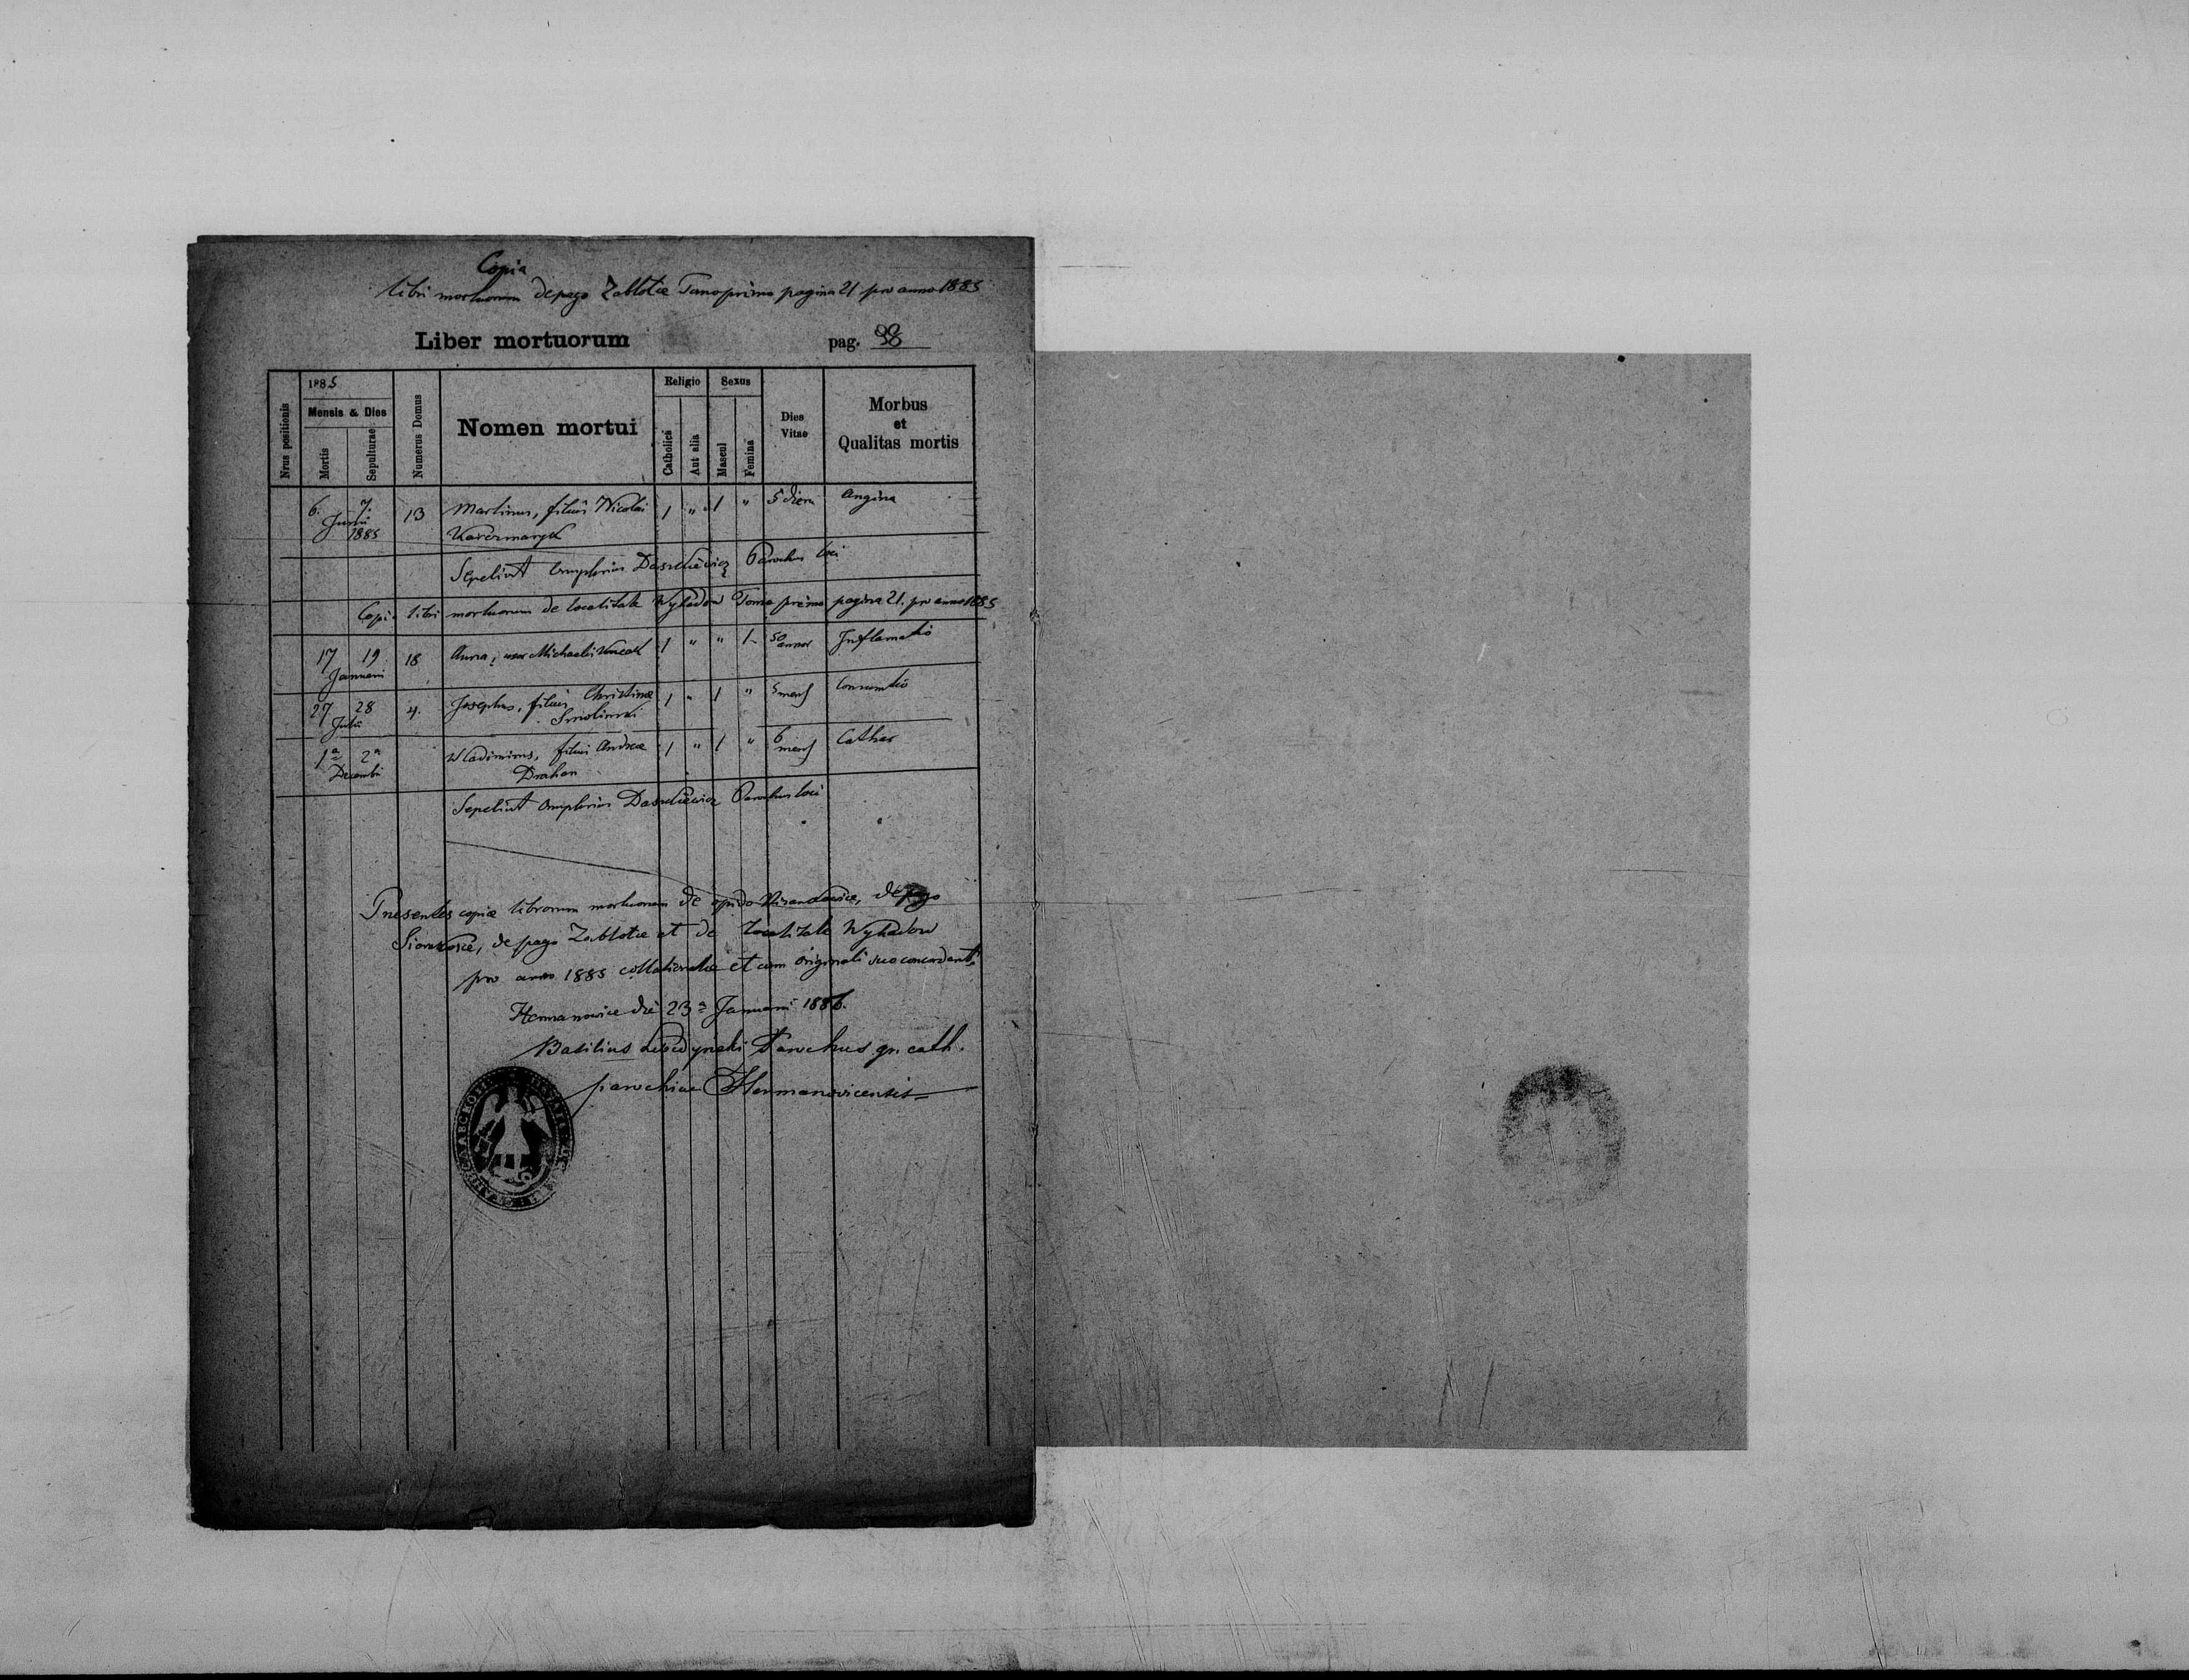 Copia
libri mortuorum de pago Zablotce Tomo primo pagina 21 pro anno 1885
Liber mortuorum pag. 98
1885 Religio Sexus
Nrus positionis Mensis & Dies Numerus Domus Nomen mortui Dies Vitae Morbus et Qualitas mortis
Mortis Sepulturae Catholica Aut alia Mascul Femina
6. 7. 13 Martinus, filius Nicolai 1 " 1 " 5 dierum Angina
Junii
1885 Karczmaryk
Sepelivit Onuphrius Daszkiewicz Parochus loci
Copia libri mortuorum de localitate Wyhadow Tomo primo pagina 21. pro anno 1885
17 19 18 Anna, uxor Michaelis 1 " " 1 50 annor Inflamatio
Januarii
27 28 4. Josephus, filius Christinae 1 " 1 " 5 mens Consumtio
Julii Smolinski
1a 2a Wladimirus, filius Andreae 1 " 1 " 6 mens Cathar
Decembr Drahan
Sepelivit Onuphrius Daszkiewicz Parochus loci
Presentes copiae librorum mortuorum de opido de pago
de pago Zablotce et de localitate Wyhadow
pro anno 1885 collationatae et cum originali suo concordant.
Hermanowice die 23a Januarii 1886.
Basilius Parochus gr. cath.
parochiae Hermanovicensis